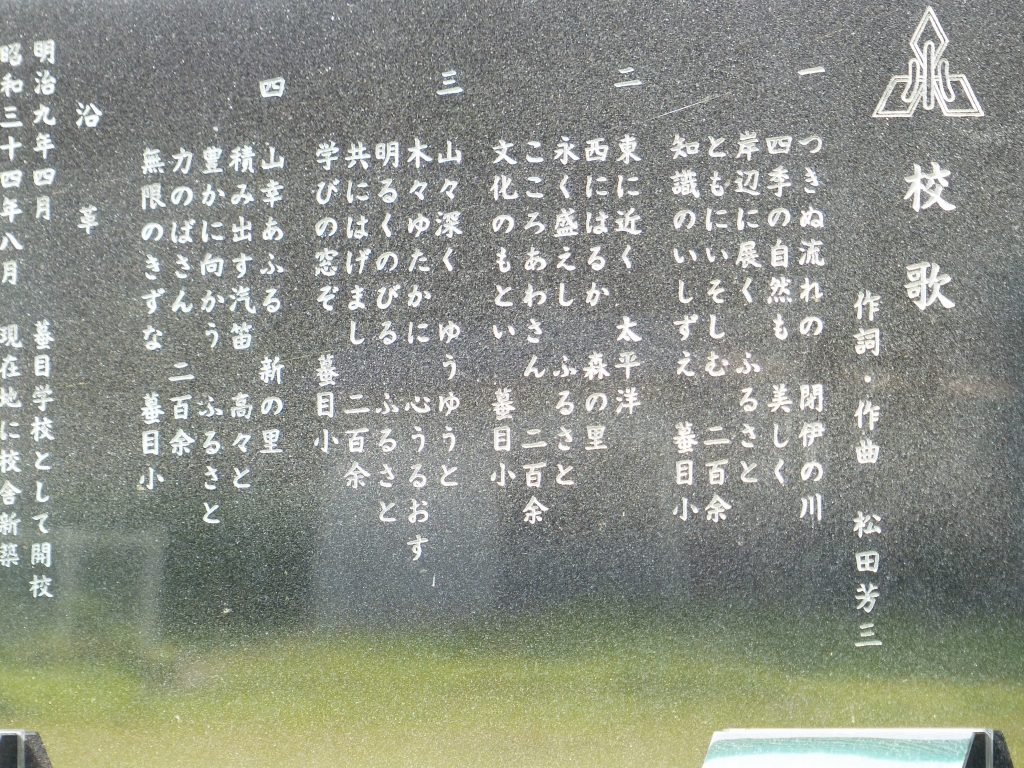 校歌
作詞・作曲 松田芳三
一
つきぬ流れの 閉伊の川
四季の自然も 美しく
岸辺に展く ふるさと
ともにいそしむ 二百余
知識のいしずえ 蟇目小
二
東に近く 太平洋
西にはるか 森の里
永く盛えし ふるさと
こころあわさん 二百余
文化のもとい 蟇目小
三
山々深く ゆうゆうと
木々ゆたかに 心うるおす
明るくのびる ふるさと
共にはげまし 二百余
学びの窓ぞ 蟇目小
四
山幸あふる 新の里
積み出す汽笛 高々と
豊かに向かう ふるさと
力のばさん 二百余
無限のきずな 蟇目小
沿革
明治九年四月 蟇目学校として開校
昭和三十四年八月 現在地に校舎新築